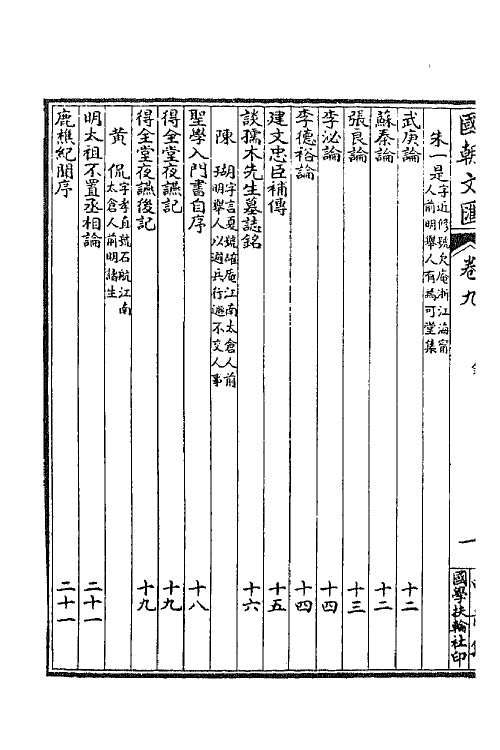 國朝文匯
卷九
一
國學扶輪社印
朱一是字近修號欠庵浙江海甯人前明舉人有為可堂集
武庚論 十二
蘇秦論 十二
張良論 十三
李泌論 十四
李德裕論 十四
建文忠臣補傳 十五
談孺木先生墓誌銘 十六
陳 瑚字言夏號確庵江南太倉人前明舉人以避兵行遯不交人事
聖學入門書自序 十八
得全堂夜讌記 十九
得全堂夜讌後記 十九
黃 侃字孝直號石航江南太倉人前明諸生
明太祖不置丞相論 二十一
鹿樵紀聞序 二十一